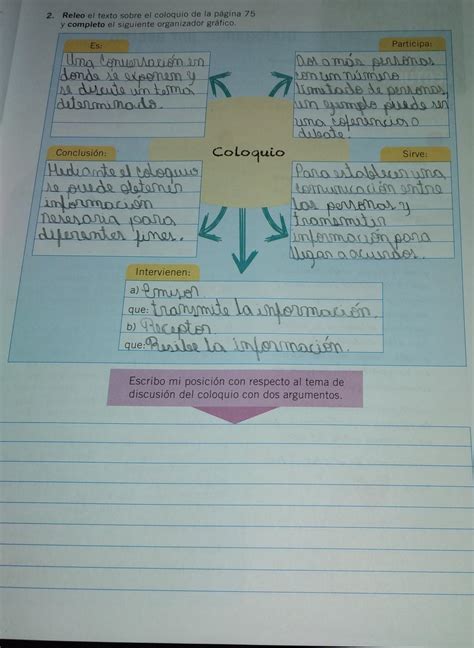 2. Releo el texto sobre el coloquio de la página 75
y completo el siguiente organizador gráfico.
Es:
Una Conversación en
donde se exponen y
se discute un tema
determinado.
Participa:
Dos a más personas
con un número
limitado de personas,
un ejemplo puede ser
una conferencia o
debate.
Coloquio
Conclusión:
Mediante el coloquio
se puede obtener
información
necesaria para
diferentes fines.
Sirve:
Para establecer una
comunicación entre
las personas y
transmitir
información para
llegar a acuerdos.
Intervienen:
a) Emisor
que: transmite la información.
b) Receptor
que: Resibe la información.
Escribo mi posición con respecto al tema de
discusión del coloquio con dos argumentos.